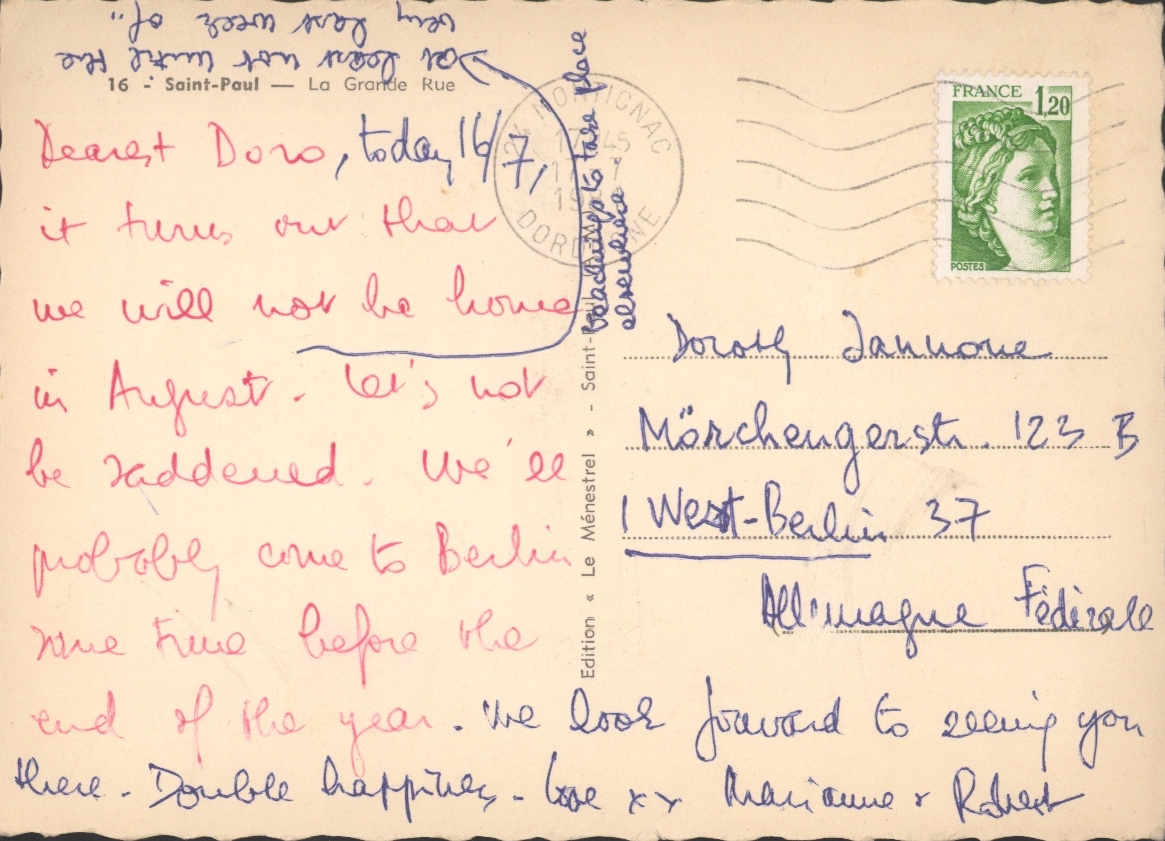 at least not until the
very last week of..
16 - Saint-Paul — La Grande Rue
Dearest Doro, today 16/7,
it turns out that
we will not be home
in August. Let's not
be saddened. We'll
probably come to Berlin
some time before the
end of the year. We look forward to seeing you
there. Double happiness. Love xx Marianne + Robert
to take place
elsewhere
Edition « Le Ménestrel » - Saint-Paul
24 MONTIGNAC
17 45
17 - 7
19
DORDOGNE
FRANCE 1,20
POSTES
Dorothy Iannone
Mörchengerstr. 123 B
1 West-Berlin 37
Allemagne Fédérale